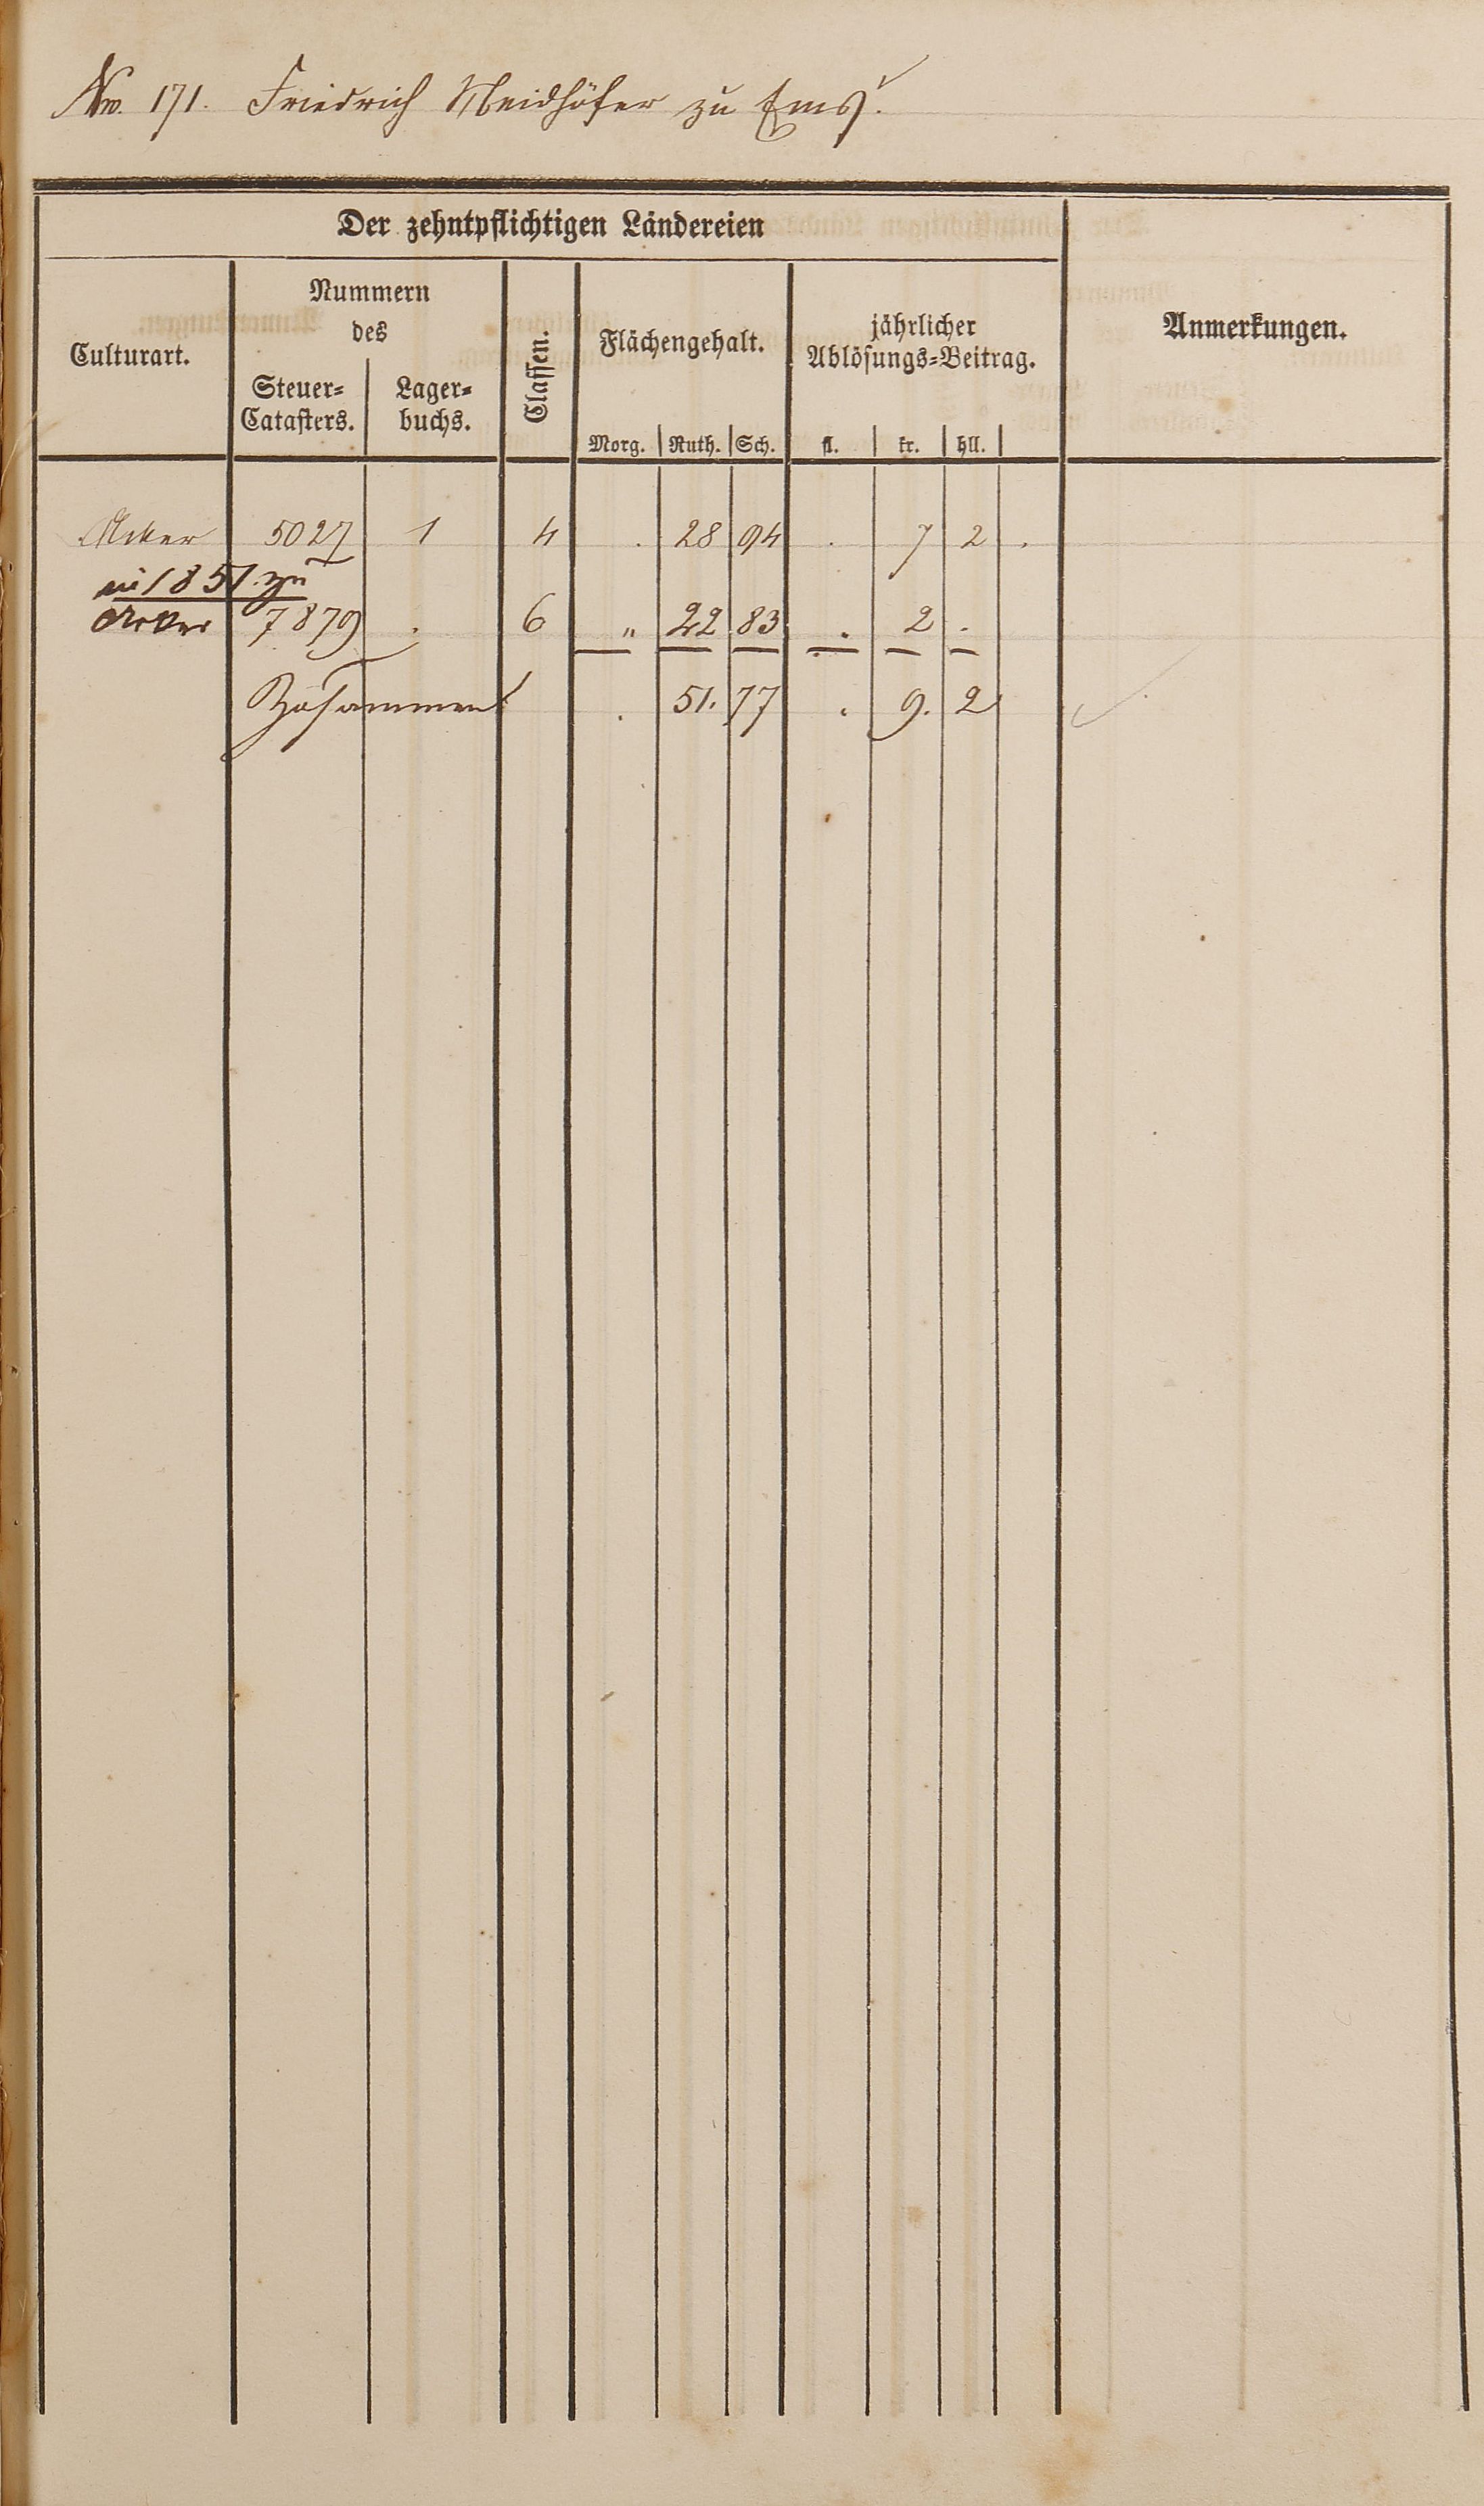 No. 171. Friedrich Neidhöfer zu Ems.
Der zehntpflichtigen Ländereien
Culturart.
Nummern
des
Steuer=
Catasters.
Lager=
buchs.
Classen.
Flächengehalt.
Morg. Ruth. Sch.
jährlicher
Ablösungs=Beitrag.
fl. kr. hll.
Anmerkungen.
Acker 5027 1 4 . 28 94 . 7 2 .
in 1851 zu
Acker 7879 . 6 „ 22 83 . 2 .
Zusammen . 51. 77 . 9. 2